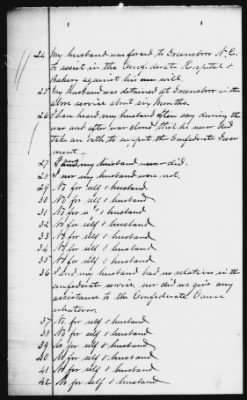 24 My husband was forced to Greensboro N.C.
to assist in the Confederate Hospital &
Bakery against his own will.
25 My husband was detained at Greensboro in the
above service about six Months.
26 I have heard my husband often say during the
war and after war closed that he never did
take an oath to support the Confederate Govern-
ment.
27 I and my husband never did.
28 I nor my husband were not.
29 No for self & husband
30 No for self & husband
31 No for " & husband
32 No for self & husband
33 No for self & husband
34 No for self & husband
35 No for self & husband
36 I and my husband had no relatives in the
confederate service, nor did we give any
assistance to the Confederate Cause
whatever.
37 No for self & husband
38 No for self & husband
39 No for self & husband
40 No for self & husband
41 No for self & husband
42 No for self & husband